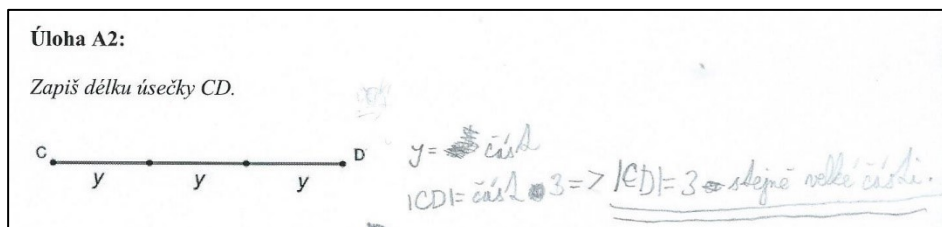 Úloha A2:
Zapiš délku úsečky CD.
C D
y y y
y = část
|CD| = část • 3 => |CD| = 3 stejně velké části.